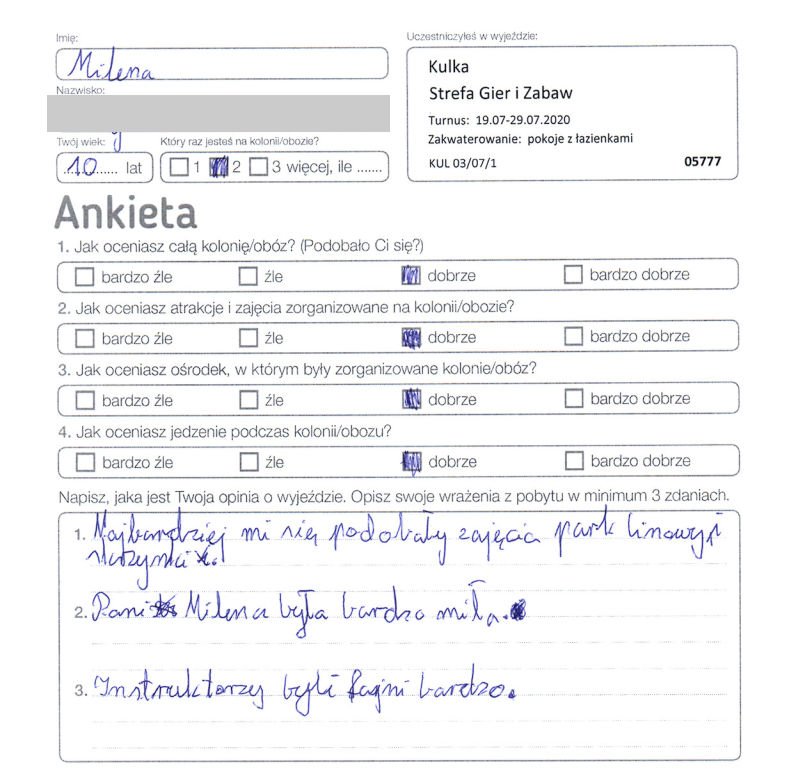 Imię:
Milena
Nazwisko:
Uczestniczyłeś w wyjeździe:
Kulka
Strefa Gier i Zabaw
Turnus: 19.07-29.07.2020
Zakwaterowanie: pokoje z łazienkami
KUL 03/07/1 05777
Twój wiek: Który raz jesteś na kolonii/obozie?
10 lat 1 2 3 więcej, ile .......
Ankieta
1. Jak oceniasz całą kolonię/obóz? (Podobało Ci się?)
bardzo źle źle dobrze bardzo dobrze
2. Jak oceniasz atrakcje i zajęcia zorganizowane na kolonii/obozie?
bardzo źle źle dobrze bardzo dobrze
3. Jak oceniasz ośrodek, w którym były zorganizowane kolonie/obóz?
bardzo źle źle dobrze bardzo dobrze
4. Jak oceniasz jedzenie podczas kolonii/obozu?
bardzo źle źle dobrze bardzo dobrze
Napisz, jaka jest Twoja opinia o wyjeździe. Opisz swoje wrażenia z pobytu w minimum 3 zdaniach.
1. Najbardziej mi się podobały zajęcia park linowy i
2. Pani Milena była bardzo miła.
3. Instruktorzy byli fajni bardzo.